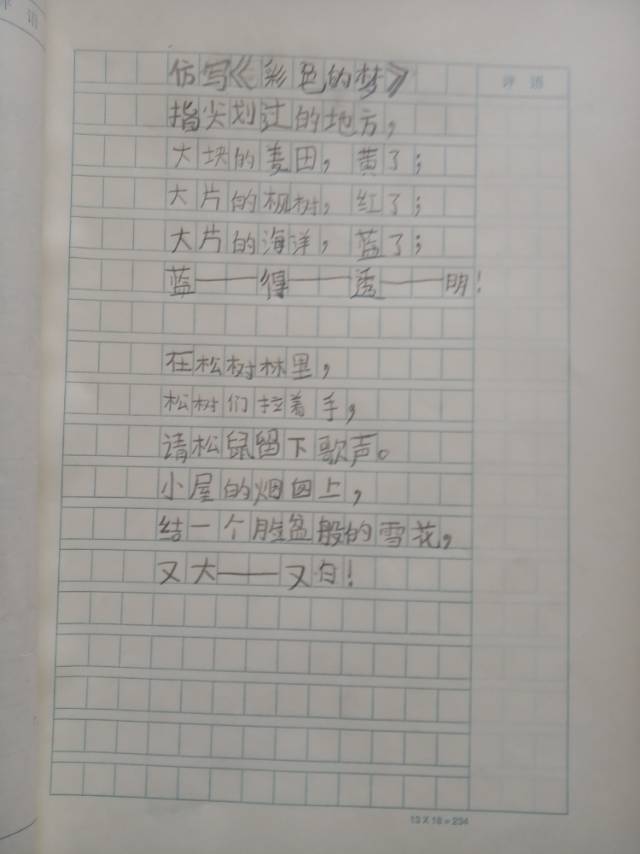 评语
仿写《彩色的梦》
指尖划过的地方，
大块的麦田，黄了；
大片的枫树，红了；
大片的海洋，蓝了；
蓝——得——透——明！
在松树林里，
松树们拉着手，
请松鼠留下歌声。
小屋的烟囱上，
结一个脸盆般的雪花，
又大——又白！
13×18=234